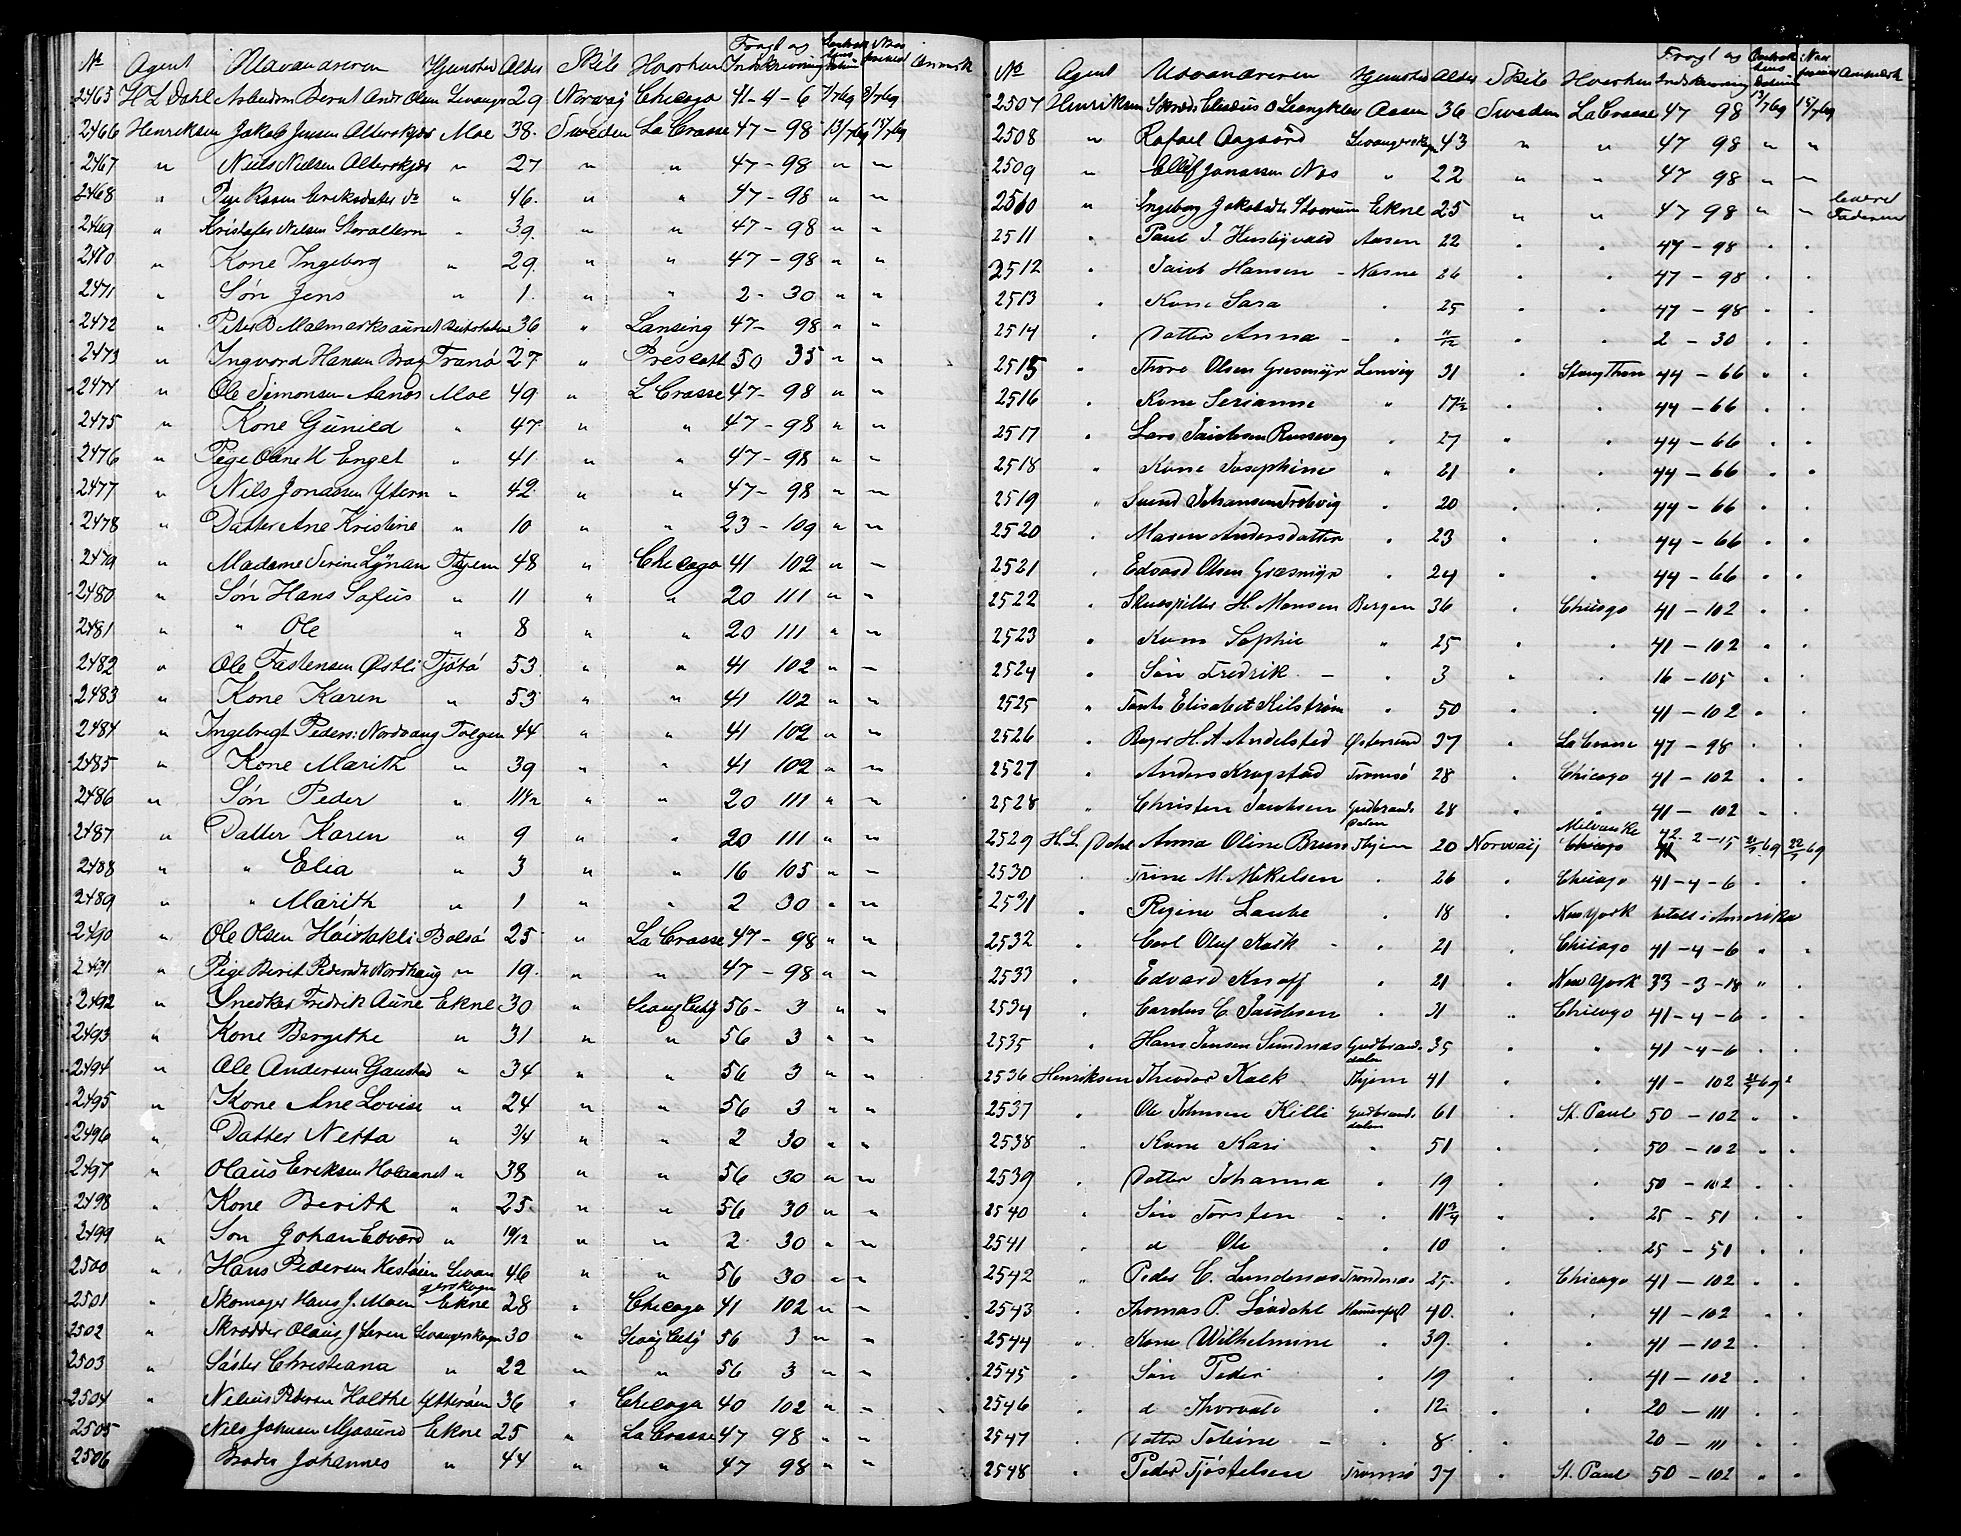 No Agent Udvandreren Hjemsted Alder Skib Hvorhen Fragt og Indskrivning Contractens Datum Naar forevist Anmærk
2465 H L Dahl Arbeidsm Bernt Andr Olsen Levanger 29 Norway Chicago 41-4-6 7/7 69 8/7 69
2466 Henriksen Jakob Jensen Alterskjær Moe 38 Sweden La Crosse 47-98 13/7 69 15/7 69
2467 " Niels Nielsen Alterskjær " 27 " " 47-98 " "
2468 " Pige Karen Eriksdater do " 46 " " 47-98 " "
2469 " Kristofer Nielsen Storaltern " 39 " " 47-98 " "
2470 " Kone Ingeborg " 29 " " 47-98 " "
2471 " Søn Jens " 1 " " 2-30 " "
2472 " Peter B Malmarksaunet 36 " Lansing 47-98 " "
2473 " Ingvard Hansen Tranø 27 " Prescott 50 35 " "
2474 " Ole Simonsen Aanæs Moe 49 " L Crosse 47-98 " "
2475 " Kone Gunild " 47 " " 47-98 " "
2476 " Pige Oline M Enget " 41 " " 47-98 " "
2477 " Nils Jonassen Ytern " 42 " " 47-98 " "
2478 " Datter Ane Kristine " 10 " " 23-109 " "
2479 " Madame Serine Lyman 48 " Chicago 41 102 " "
2480 " Søn Hans Sofus " 11 " " 20 111 " "
2481 " " Ole " 8 " " 20 111 " "
2482 " Ole Fastensen Østli Tjøtø 53 " " 41 102 " "
2483 " Kone Karen " 53 " " 41 102 " "
2484 " Ingebrigt Peders: Nordvang Tolgen 44 " " 41 102 " "
2485 " Kone Marith " 39 " " 41 102 " "
2486 " Søn Peder " 11 1/2 " " 20 111 " "
2487 " Datter Karen " 9 " " 20 111 " "
2488 " " Elia " 3 " " 16 105 " "
2489 " " Marith " 1 " " 2 30 " "
2490 " Ole Olsen Bolsø 25 " La Crosse 47-98 " "
2491 " Pige Berit Pedersdt Nordhaug " 19 " " 47-98 " "
2492 " Snedker Fredrik Aune Ekne 30 " 56-3 " "
2493 " Kone Bergithe " 31 " " 56 3 " "
2494 " Ole Andersen Gaustad " 34 " " 56 3 " "
2495 " Kone Ane Lovise " 24 " " 56 3 " "
2496 " Datter Netta " 3/4 " " 2 30 " "
2497 " Olaus Eriksen " 38 " " 56 30 " "
2498 " Kone Berith " 25 " " 56 30 " "
2499 " Søn Johan Edvard " 10/12 " " 2 30 " "
2500 " Hans Pedersen Levangerskogn 46 " " 56 30 " "
2501 " Skomager Hans J. Moen Ekne 28 " Chicago 41 102 " "
2502 " Skrædder Olaus J Leren Levangerskogn 30 " 56 3 " "
2503 " Søster Christiana " 22 " " 56 3 " "
2504 " Nelius Petersen Holthe Ytterøen 36 " Chicago 40 102 " "
2505 " Nils Johnsen Ekne 25 " La Crosse 47 98 " "
2506 Broder Johannes " 44 " " 47 98 " "
No Agent Udvandreren Hjemsted Alder Skib Hvorhen Fragt og Indskrivning Contracthens Datum Naar forevist Anmærk
2507 Henriksen Aasen 36 Sweden La Crosse 47 98 13/7 69 15/7 69
2508 " Rafael Aagaard Levangerskogn 43 " " 47 98 " "
2509 " Ellef Jonassen Næs " 22 " " 47 98 " "
2510 " Ingeborg Jakobsdt Ekne 25 " " 47 98 " " Faderen
2511 " Paul J. Husbyvald Aasen 22 " " 47-98 " "
2512 " Jacob Hansen Næsne 26 " " 47-98 " "
2513 " Kone Sara " 25 " " 47-98 " "
2514 " Datter Anna " 11/12 " " 2-30 " "
2515 " Thore Olsen Græsmyr Lenvig 31 " 44-66 " "
2516 " Kone Serianne " 17 1/2 " " 44-66 " "
2517 " Lars Jacobsen " 27 " " 44-66 " "
2518 " Kone Josephine " 21 " " 44-66 " "
2519 " Svend Johansen " 20 " " 44-66 " "
2520 " Maren Andersdatter " 23 " " 44-66 " "
2521 " Edvard Olsen Græsmyr " 24 " " 44-66 " "
2522 " Skuespiller H. Monsen Bergen 36 " Chicago 41-102 " "
2523 " Kone Sophie " 25 " " 41-102 " "
2524 " Søn Fredrik " 3 " " 16-105 " "
2525 " Tante Elisabet Kilstrøm " 50 " " 41-102 " "
2526 " H. A. Andelsted Østersund 37 " La Crosse 47-98 " "
2527 " Anders Krogstad Tromsø 28 " Chicago 41-102 " "
2528 " Christen Jacobsen Gudbrandsdalen 28 " " 41-102 " "
2529 H. L. Dahl Anna Oline Bruun Thjem 20 Norway Milvauke Chicago 42-2-15 22/7 69
2530 " Trine M. Mikelsen " 26 " Chicago 41-4-6 " "
2531 " Regine Laube " 18 " New York betalt i Amerika
2532 " Carl Oluf Kask " 21 " Chicago 41-4-6 " "
2533 " Edvard Knoff " 21 " New York 33-3-18 " "
2534 " C. Jacobsen " 31 " Chicago 41-4-6 " "
2535 " Hans Jensen Sundnæs Gudbrandsdalen 35 " " 41-4-6 " "
2536 Henriksen Theodor Kaek Thjem 41 " " 41-102
2537 " Ole Johnsen Killi Gudbrandsdalen 61 " St. Paul 50-102 " "
2538 " Kone Kari " 51 " " 50-102 " "
2539 " Datter Johanna " 19 " " 50-102 " "
2540 " Søn Torsten " 11 3/4 " " 25-51 " "
2541 " d Ole " 10 " " 25-51 " "
2542 " Peder C. Lundenæs Trondenæs 25 " Chicago 41-102 " "
2543 " Thomas P. Løvdahl Hammerfest 40 " " 41-102 " "
2544 " Kone Wilhelmine " 39 " " 41-102 " "
2545 " Søn Peder " 19 " " 41-102 " "
2546 " d Thorvald " 12 " " 20-111 " "
2547 " Datter " 8 " " 20-111 " "
2548 " Peder Tjøstelsen Tromsø 37 " St. Paul 50-102 " "